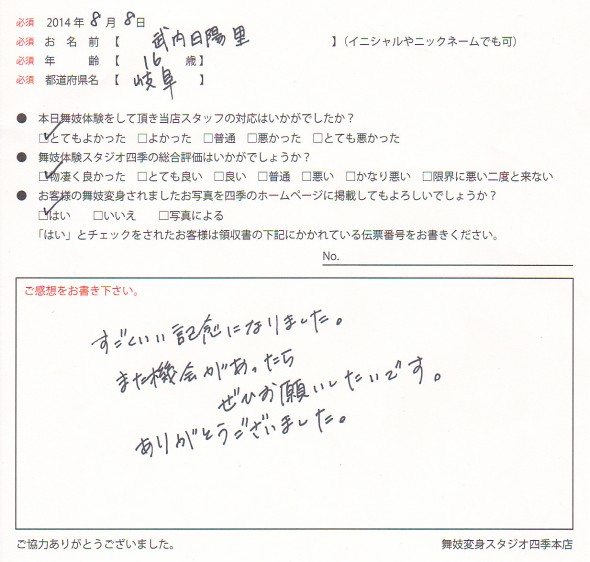 必須 2014年 8 月 8 日
必須 お 名 前 【 武内日陽里 】（イニシャルやニックネームでも可）
必須 年 齢 【 16 歳】
必須 都道府県名 【 岐阜 】
● 本日舞妓体験をして頂き当店スタッフの対応はいかがでしたか？
☑とてもよかった □よかった □普通 □悪かった □とても悪かった
● 舞妓体験スタジオ四季の総合評価はいかがでしょうか？
☑物凄く良かった □とても良い □良い □普通 □悪い □かなり悪い □限界に悪い二度と来ない
● お客様の舞妓変身されましたお写真を四季のホームページに掲載してもよろしいでしょうか？
☑はい □いいえ □写真による
「はい」とチェックをされたお客様は領収書の下記にかかれている伝票番号をお書きください。
No.
ご感想をお書き下さい。
すごくいい記念になりました。
また機会があったら
ぜひお願いしたいです。
ありがとうございました。
ご協力ありがとうございました。 舞妓変身スタジオ四季本店